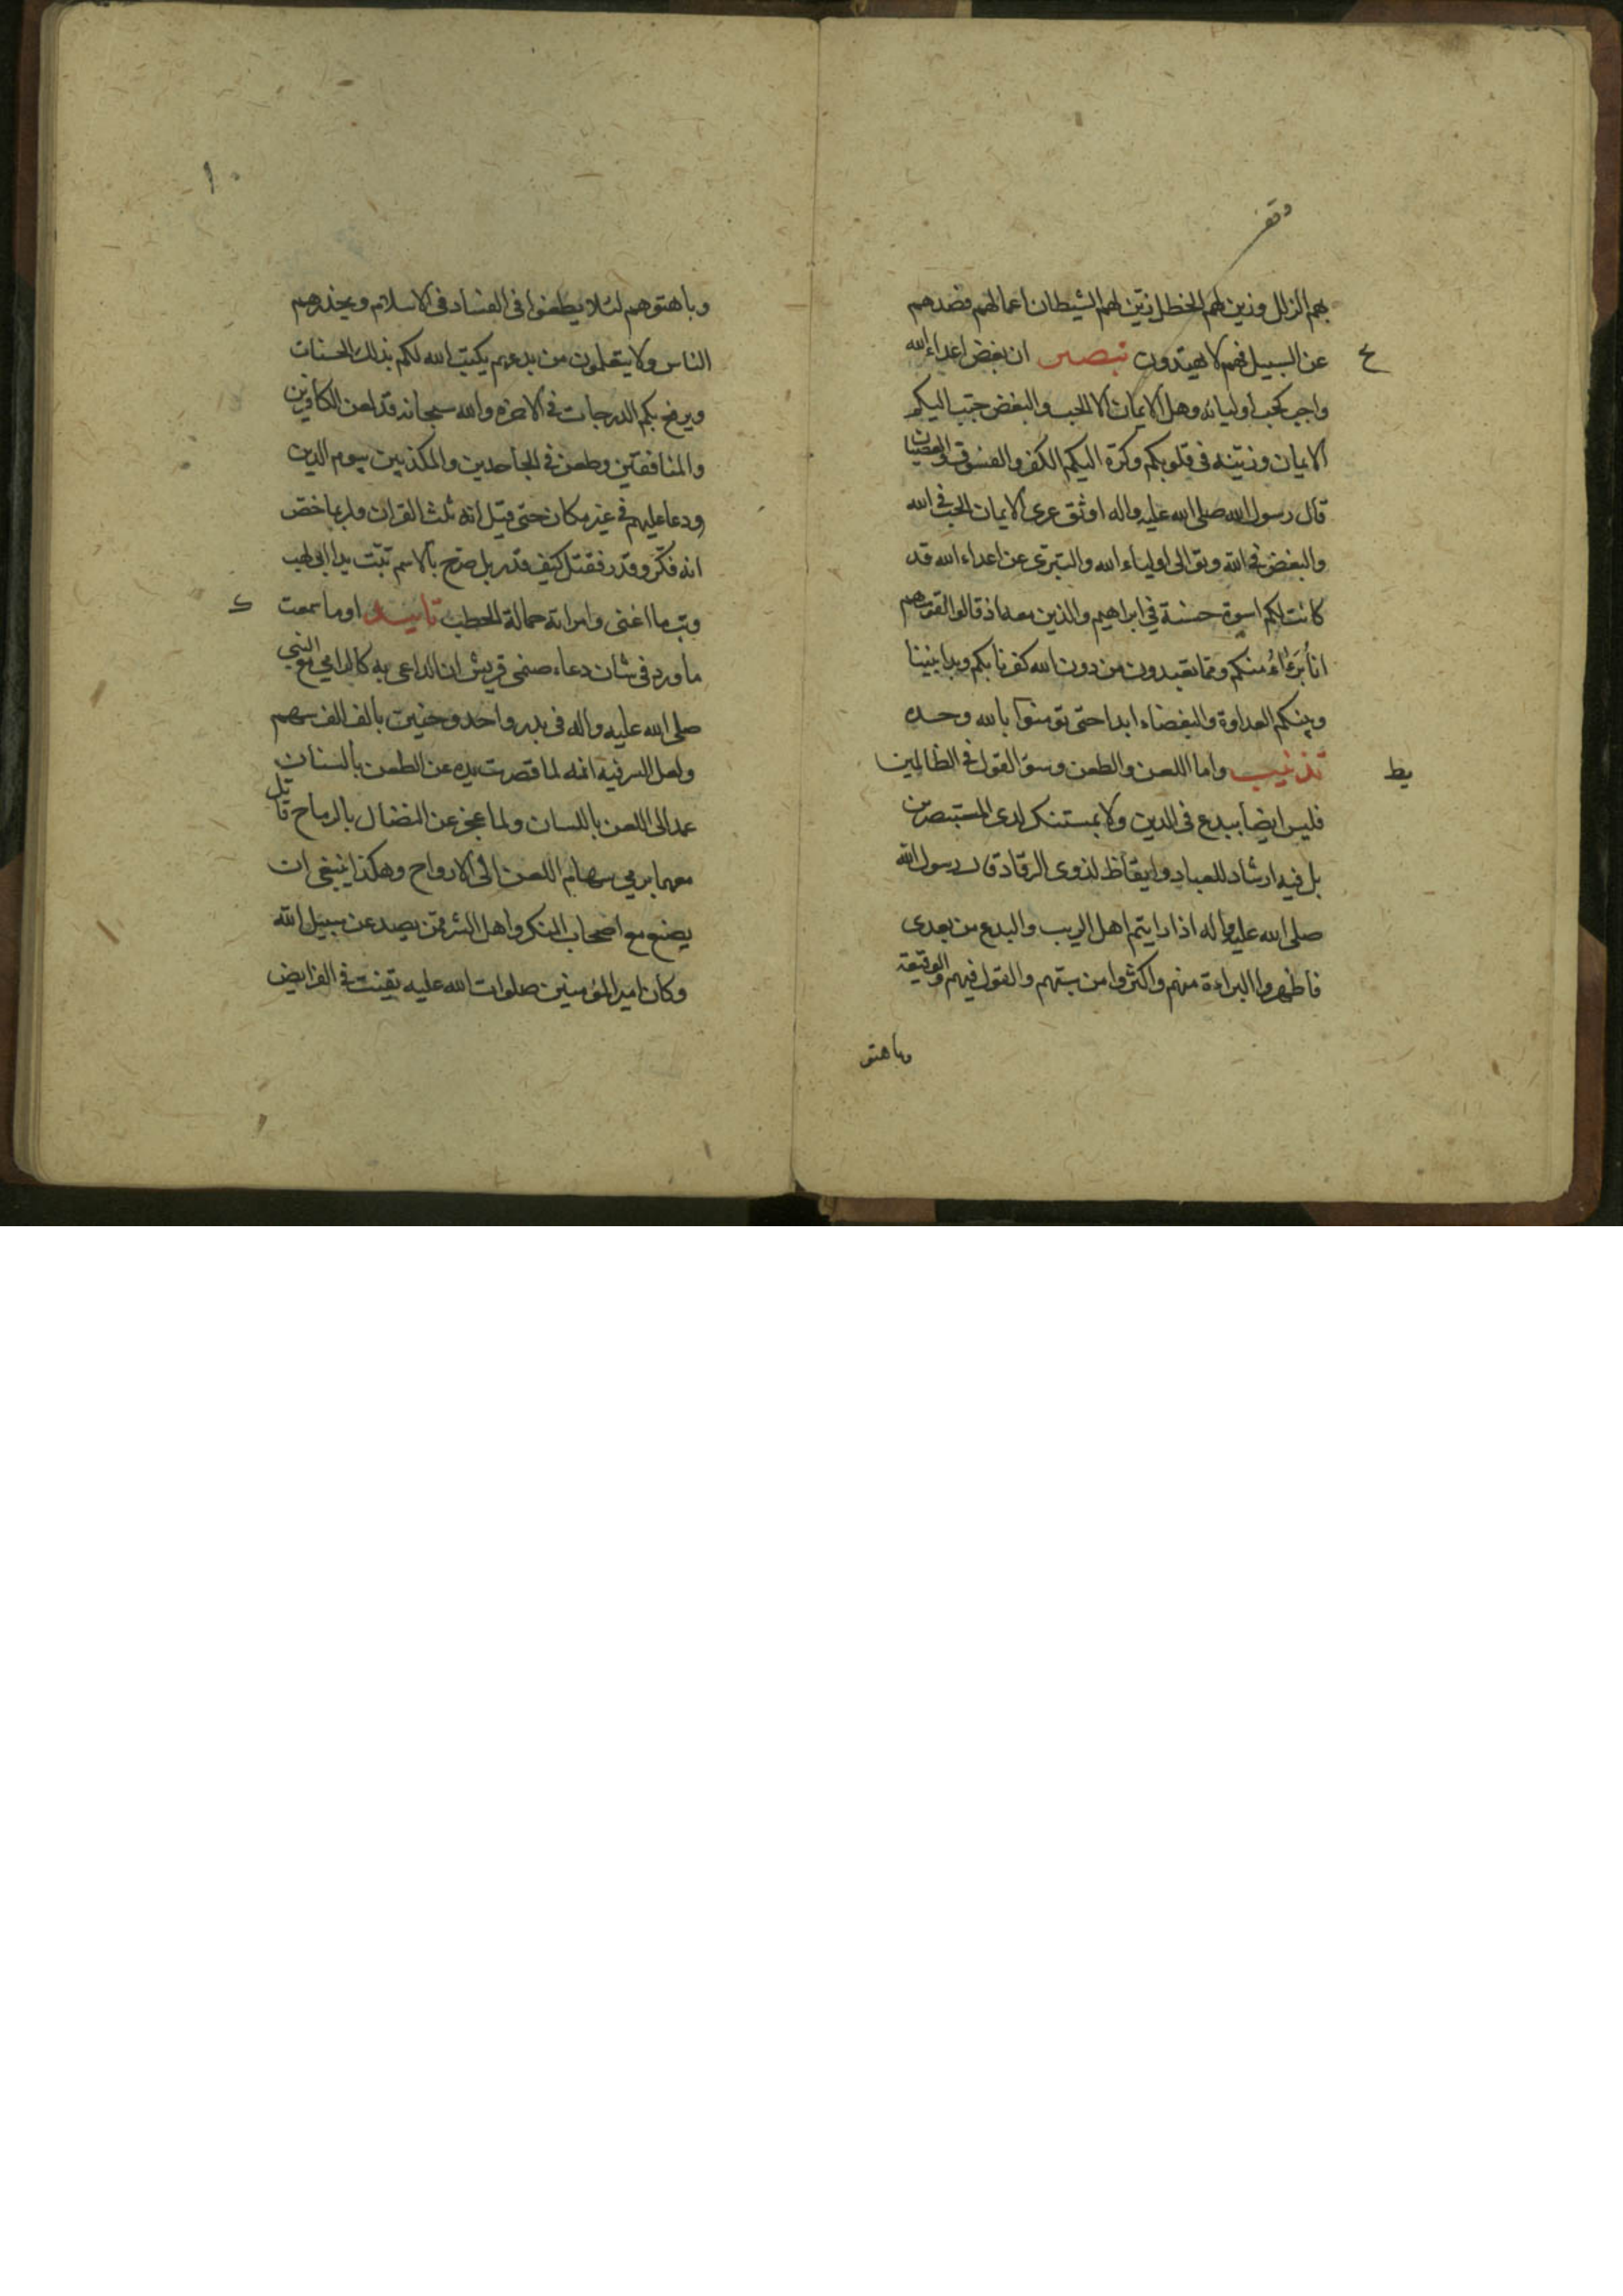 وقف
بهم الزلل وزين لهم الخطل زيّن لهم الشيطان اعمالهم فصدهم
عن السبيل فهم لا يهتدون تبصير ان بغض اعداء الله
ع
واجب كحب اوليائه وهل الايمان الا الحب والبغض حبّب اليكم
الايمان وزيّنه فى قلوبكم وكرّه اليكم الكفر والفسوق والعصيان
قال رسول الله صلى الله عليه واله اوثق عرى الايمان الحب فى الله
والبغض فى الله وتوالى اولياء الله والتبرّى عن اعداء الله قد
كانت لكم اسوة حسنة في ابراهيم والذين معه اذ قالوا لقومهم
انا بُرَءاءُ منكم ومما تعبدون من دون الله كفرنا بكم وبدا بيننا
وبينكم العداوة والبغضاء ابدا حتى تومنوا بالله وحده
تذنيب واما اللعن والطعن وسوق القول فى الظالمين
يط
فليس ايضا ببدع فى الدين ولا بمستنكر لدى المستبصرين
بل فيه ارشاد للعباد وايقاظ لذوى الرقاد قال رسول الله
صلى الله عليه واله اذا رايتم اهل الريب والبدع من بعدى
فاظهروا البراءة منهم واكثروا من سبّهم والقول فيهم والوقيعة
وباهتو
١٠
وباهتوهم لئلا يطغوا فى الفساد فى الاسلام ويحذرهم
الناس ولا يتعلمون من بدعهم يكتب الله لكم بذلك الحسنات
ويرفع بكم الدرجات فى الاخرة والله سبحانه قد لعن الكافرين
والمنافقين وطعن فى الجاحدين والمكذبين بيوم الدين
ودعا عليهم فى غير مكان حتى قيل انه ثلث القران ولربما خصّ
انه فكّر وقدّر فقتل كيف قدّر بل صرّح بالاسم تبّت يدا ابى لهب
وتب ما اغنى وامراته حمالة الحطب تاييد اوما سمعت
ك
ما ورد فى شان دعاء صنمى قريش ان الداعى به كالرامي مع النبي
صلى الله عليه واله فى بدر واحد وحنين بالف الف سهم
ولعل السر فيه انه لما قصرت يده عن الطعن بالسنان
عمد الى اللعن باللسان ولما عجز عن النضال بالرماح قاتل
معهما برمي سهام اللعن الى الارواح وهكذا ينبغى ان
يصنع مع اصحاب المنكر واهل الشر ممّن يصد عن سبيل الله
وكان امير المؤمنين صلوات الله عليه يقنت فى الفرايض